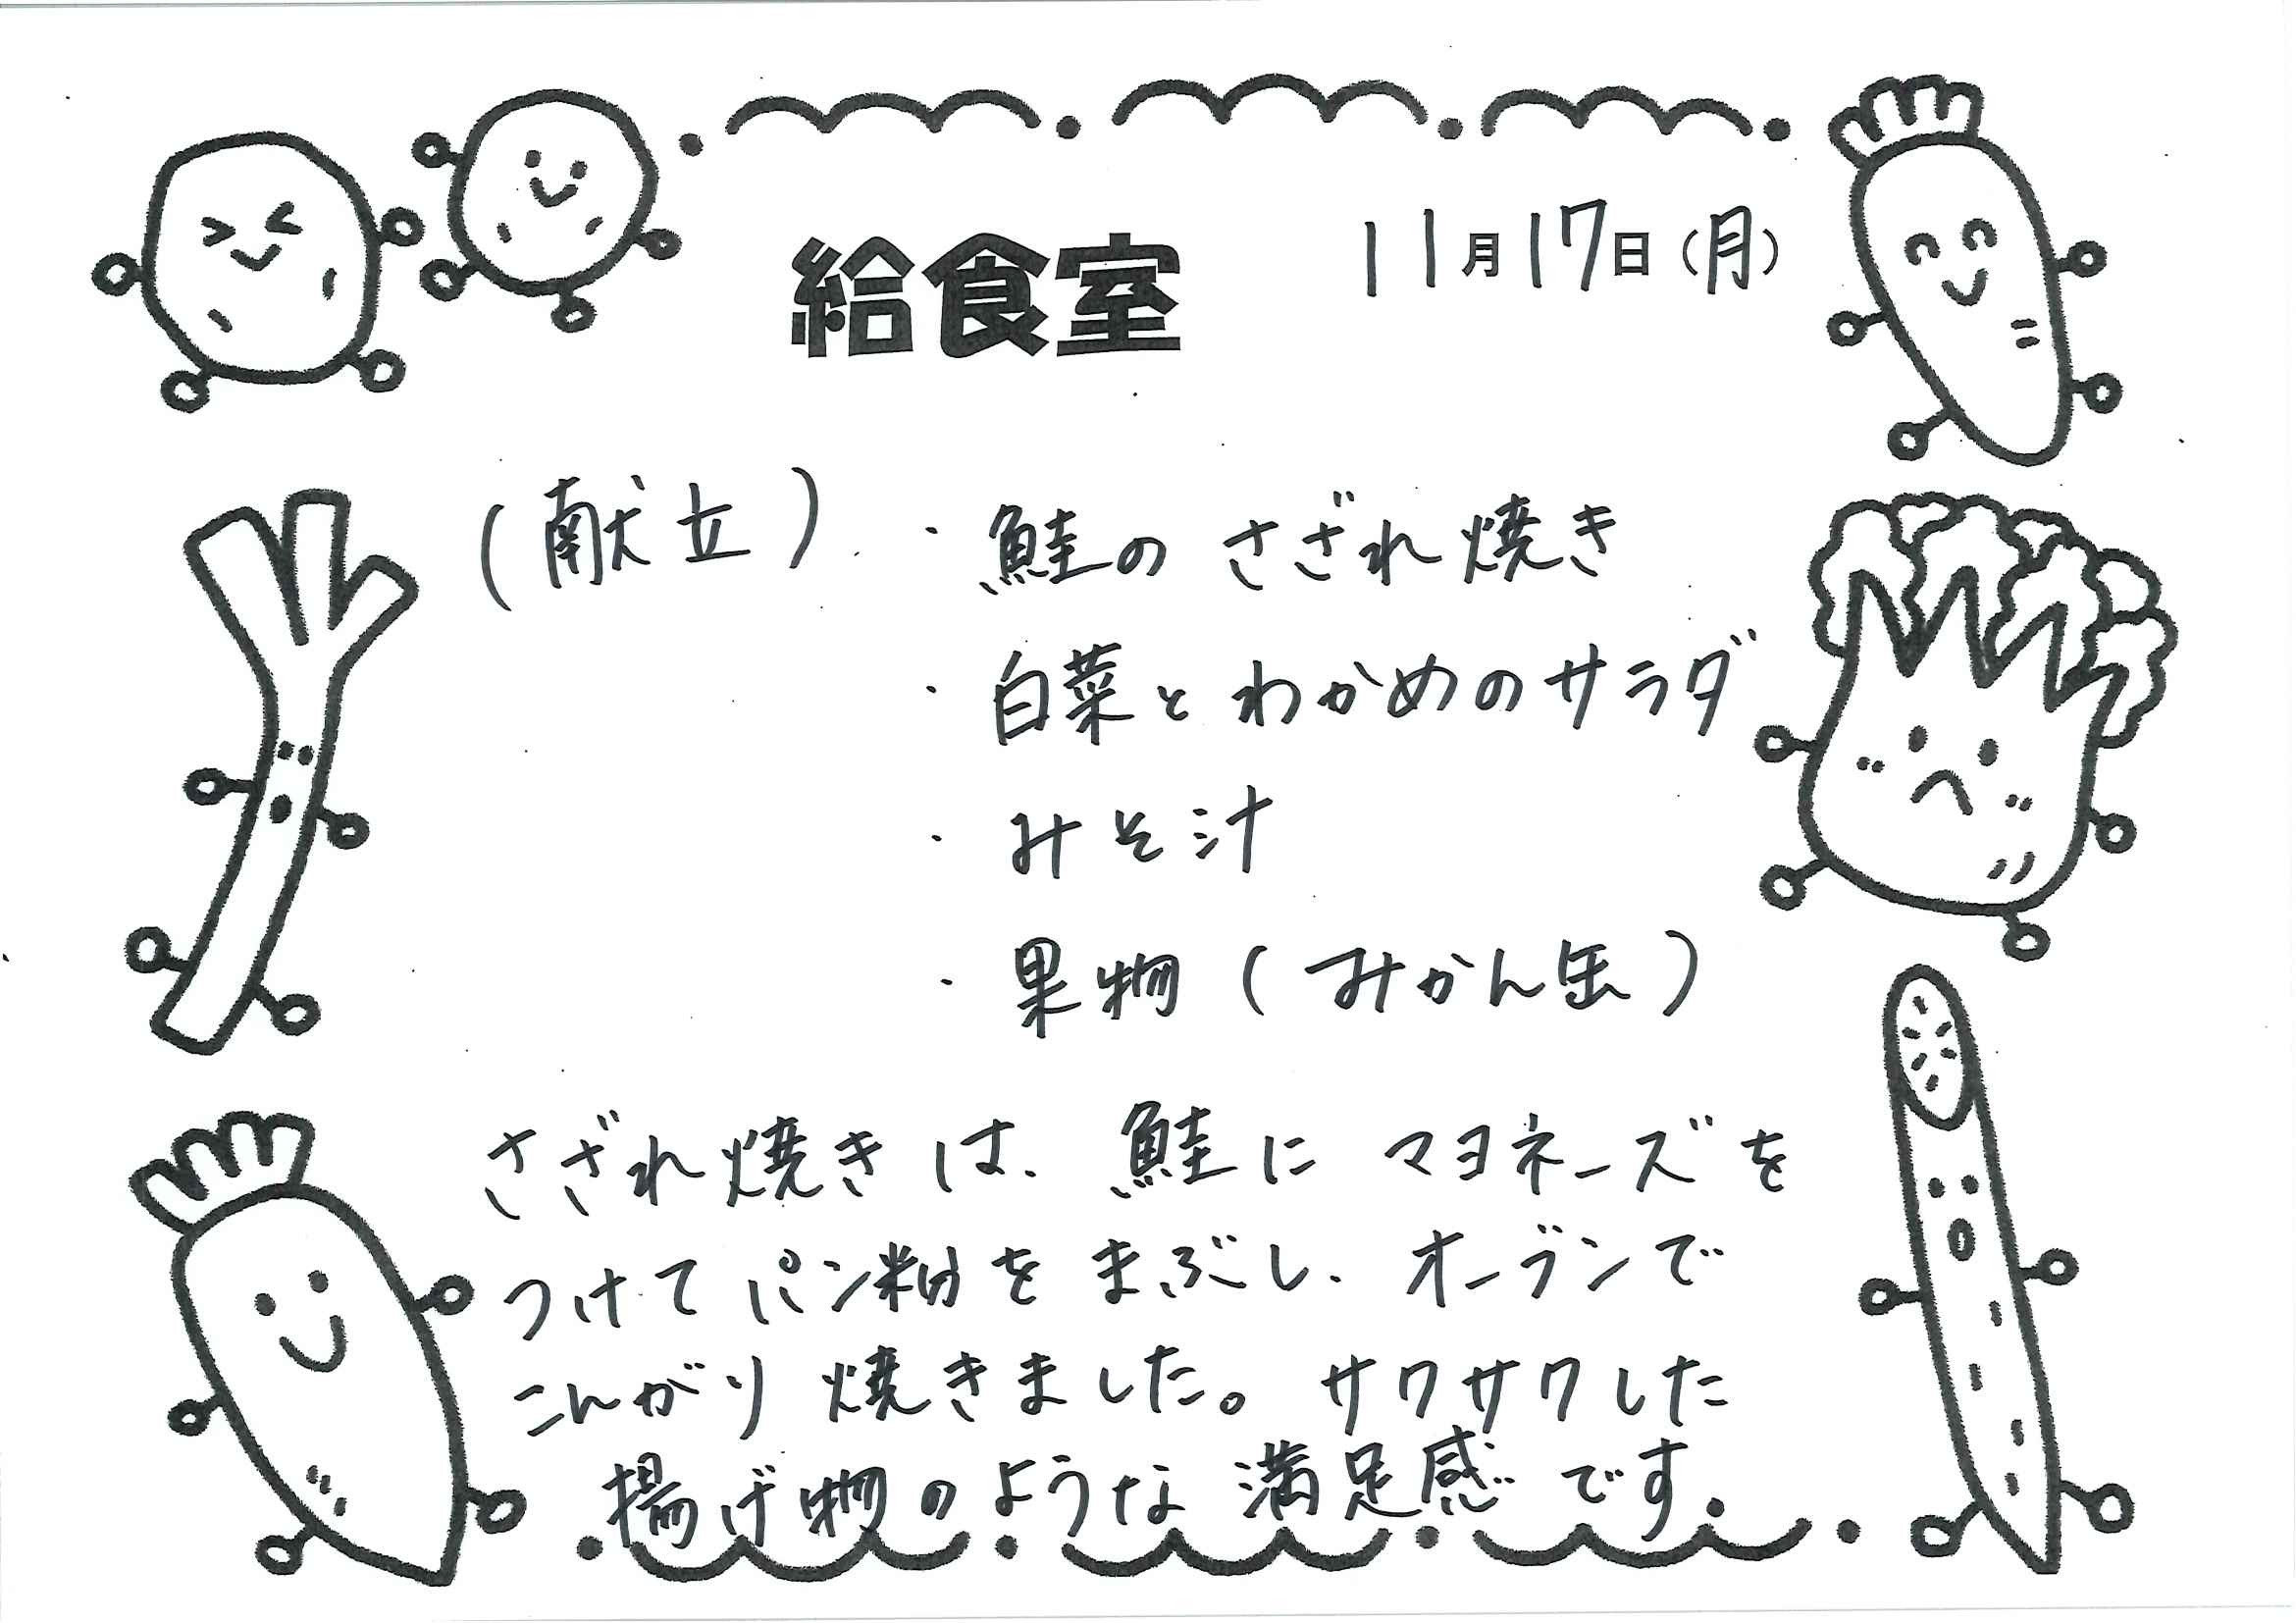 給食室
11月17日(月)
(献立) ・鮭のさざれ焼き
・白菜とわかめのサラダ
・みそ汁
・果物(みかん缶)
さざれ焼きは、鮭にマヨネーズを
つけてパン粉をまぶし、オーブンで
こんがり焼きました。サクサクした
揚げ物のような満足感です。